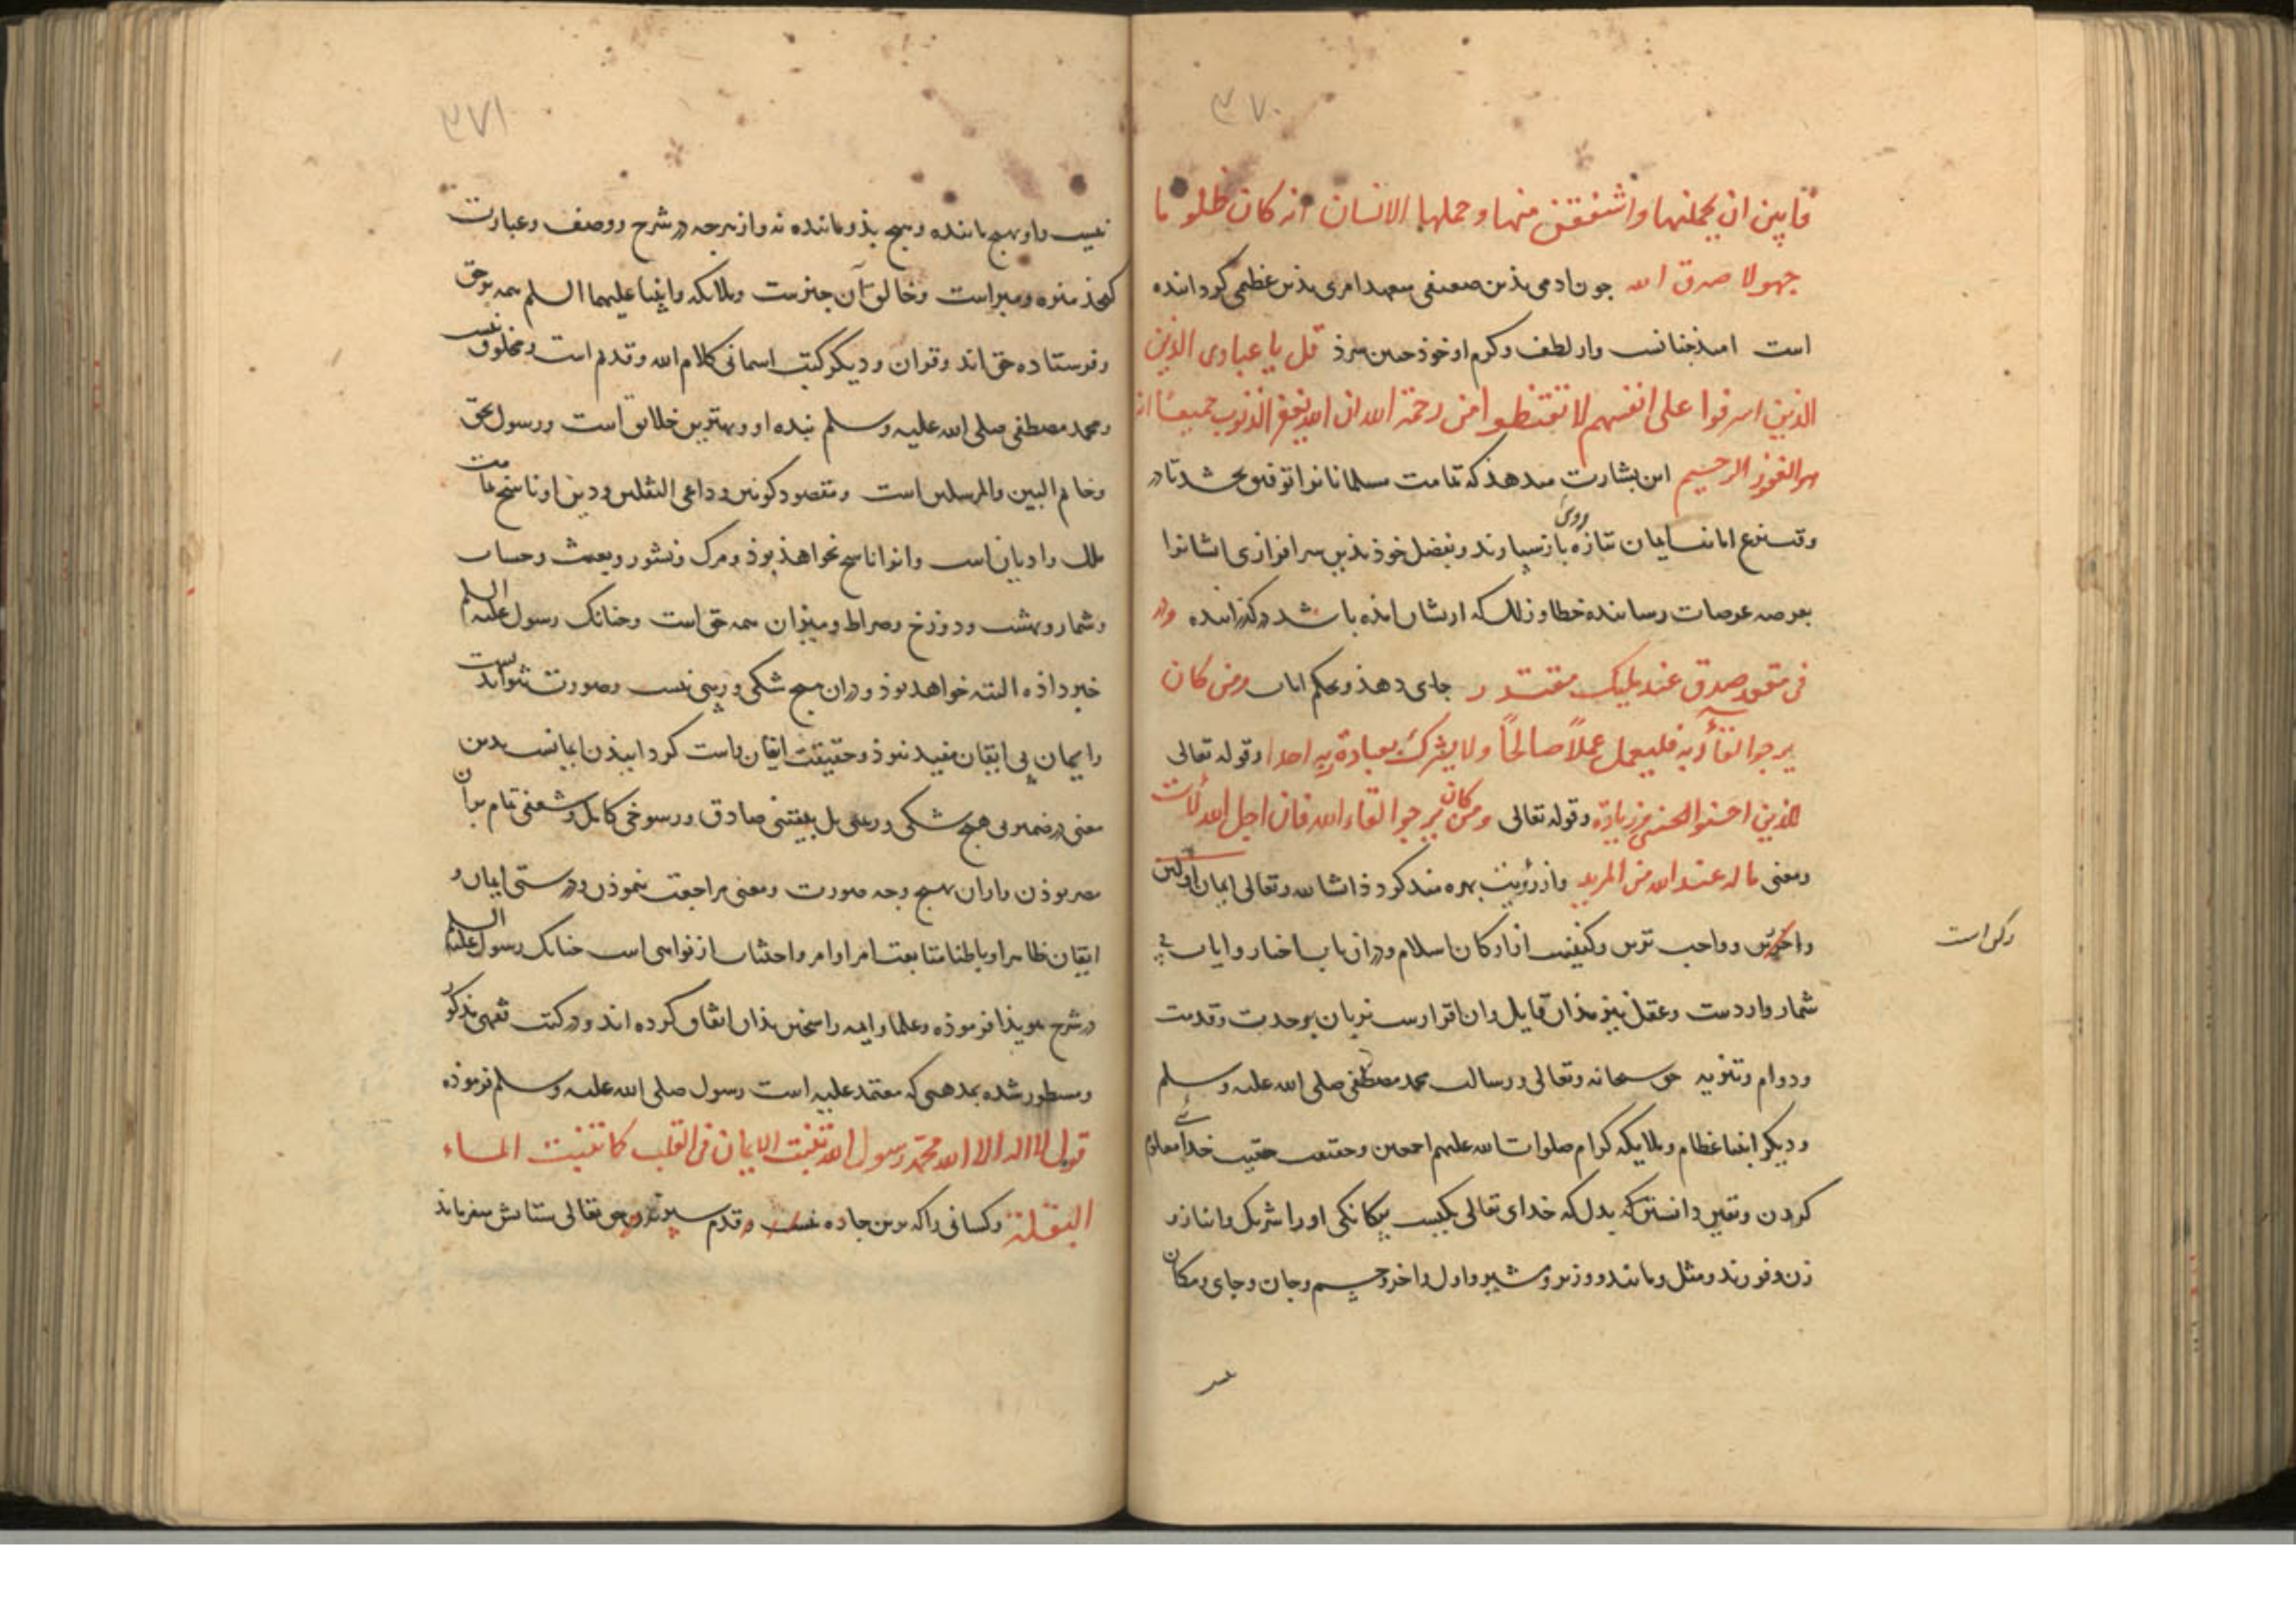 ۳۷۰
فابین ان یحملنها واشفقن منها وحملها الانسان انه کان ظلوما
جهولا صدق الله جون ادمی بذین ضعیفی متعهد امری بذین عظیمی کرداننده
است امید جنانست واز لطف وکرم او خوذ همین سزذ قل یا عبادی الذین
الذین اسرفوا علی انفسهم لا تقنطوا من رحمة الله ان الله یغفر الذنوب جمیعًا انه
هو الغفور الرحیم این بشارت میدهذ که تمامت مسلمانانرا توفیق بخشد تا در
وقت نزع امانت ایمان تازه روی باز سپارند وبفضل خوذ بذین سرافرازی ایشانرا
بعرصه عرصات رساننده خطا وزلل که ازیشان امذه باشد درکذراننده ودر
فی مقعد صدق عند ملیک مقتدر جای دهذ وبحکم ایات ومن کان
یرجوا لقآء ربه فلیعمل عملاً صالحًا ولا یشرک بعبادة ربه احدا وقوله تعالی
للذین احسنوا الحسنی وزیادة وقوله تعالی ومن کان یرجوا لقاء الله فان اجل الله لات
ومعنی ما له عند الله من المزید واز رؤیت بهره مند کردذ انشا الله وتعالی ایمان اولین
واخرین وواجب ترین وکیفیت ان ارکان اسلام ودران باب اخبار وایات بی
رکن است
شمار واردست وعقل نیز بذان قایل وان اقرارست بزبان بوحدت وقدمت
ودوام وتنزیه حق سبحانه وتعالی ورسالت محمد مصطفی صلی الله علیه وسلم
ودیکر انبیا عظام وملایکه کرام صلوات الله علیهم اجمعین وحقیقت حقیت خدای معلوم
کردن ویقین دانستن که بدل که خدای تعالی یکیست بیکانکی اورا شریک وانباز و
زن وفرزند ومثل ومانند ووزیر ومشیر واول واخر وجسم وجان وجای ومکان
۳۷۱
نیست واو بهیج ماننده وهیج بذو ماننده نه واز هرجه در شرح ووصف وعبارت
کنجذ منزه ومبراست وخالق آن جیزست وملایکه وانبیا علیهما السلم همه بر حق
وفرستاده حق اند وقران ودیکر کتب اسمانی کلام الله وقدیم است ومخلوق نیست
ومحمد مصطفی صلی الله علیه وسلم بنده او وبهترین خلایق است ورسول بحق
وخاتم النبیین والمرسلین است ومقصود کونین وداعی الثقلین ودین او ناسخ مامت
ملل وادیان است وانرا ناسخ نخواهذ بوذ ومرک ونشور وبعث وحساب
وشمار وبهشت ودوزخ وصراط ومیزان همه حق است وجنانک رسول علیه السلم
خبر داذه البته خواهد بوذ ودران هیج شکی وریبی نیست وصورت نتواند بست
وایمان بی ایقان مفید نبوذ وحقیقت ایقان راست کردانیذن ایمانست بدین
معنی در ضمیر بی هیج شکی وریبی بل بیقینی صادق ورسوخی کامل وشعفی تمام بران
مصر بوذن وازان بهیج وجه صورت ومعنی مراجعت ننموذن ودرستی ایمان و
ایقان ظاهرا وباطنا متابعت امر اوامر واجتناب از نواهی است جنانک رسول علیه السلم
در شرح هویذا فرموذه وعلما وایمه راسخین بذان اتفاق کرده اند ودر کتب فقهی مذکور
ومسطور شده بمذهبی که معتمد علیه است رسول صلی الله علیه وسلم فرموذه
قول لا اله الا الله محمد رسول الله تنبت الایمان فی القلب کما تنبت الماء
البقلة وکسانی را که برین جاده قدم سپرند حق تعالی ستایش میفرماید